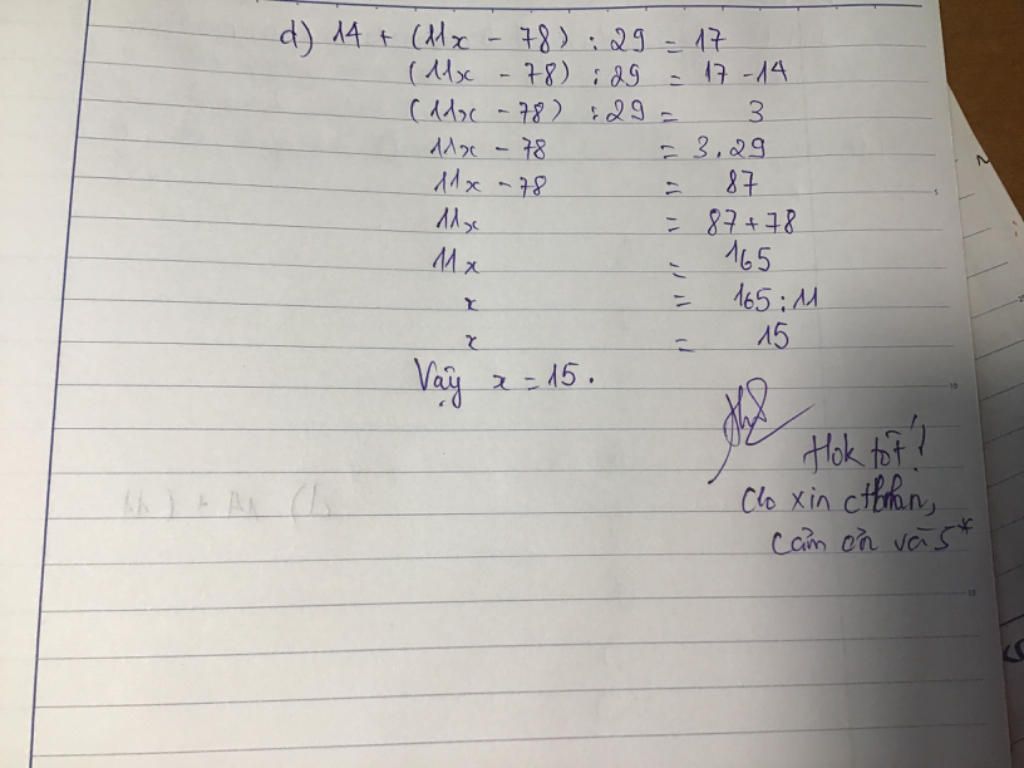 d) 14 + (11x - 78) : 29 = 17
(11x - 78) : 29 = 17 - 14
(11x - 78) : 29 = 3
11x - 78 = 3.29
11x - 78 = 87
11x = 87 + 78
11x = 165
x = 165 : 11
x = 15
Vậy x = 15.
Hok tốt!
Cho xin
cảm ơn và 5*